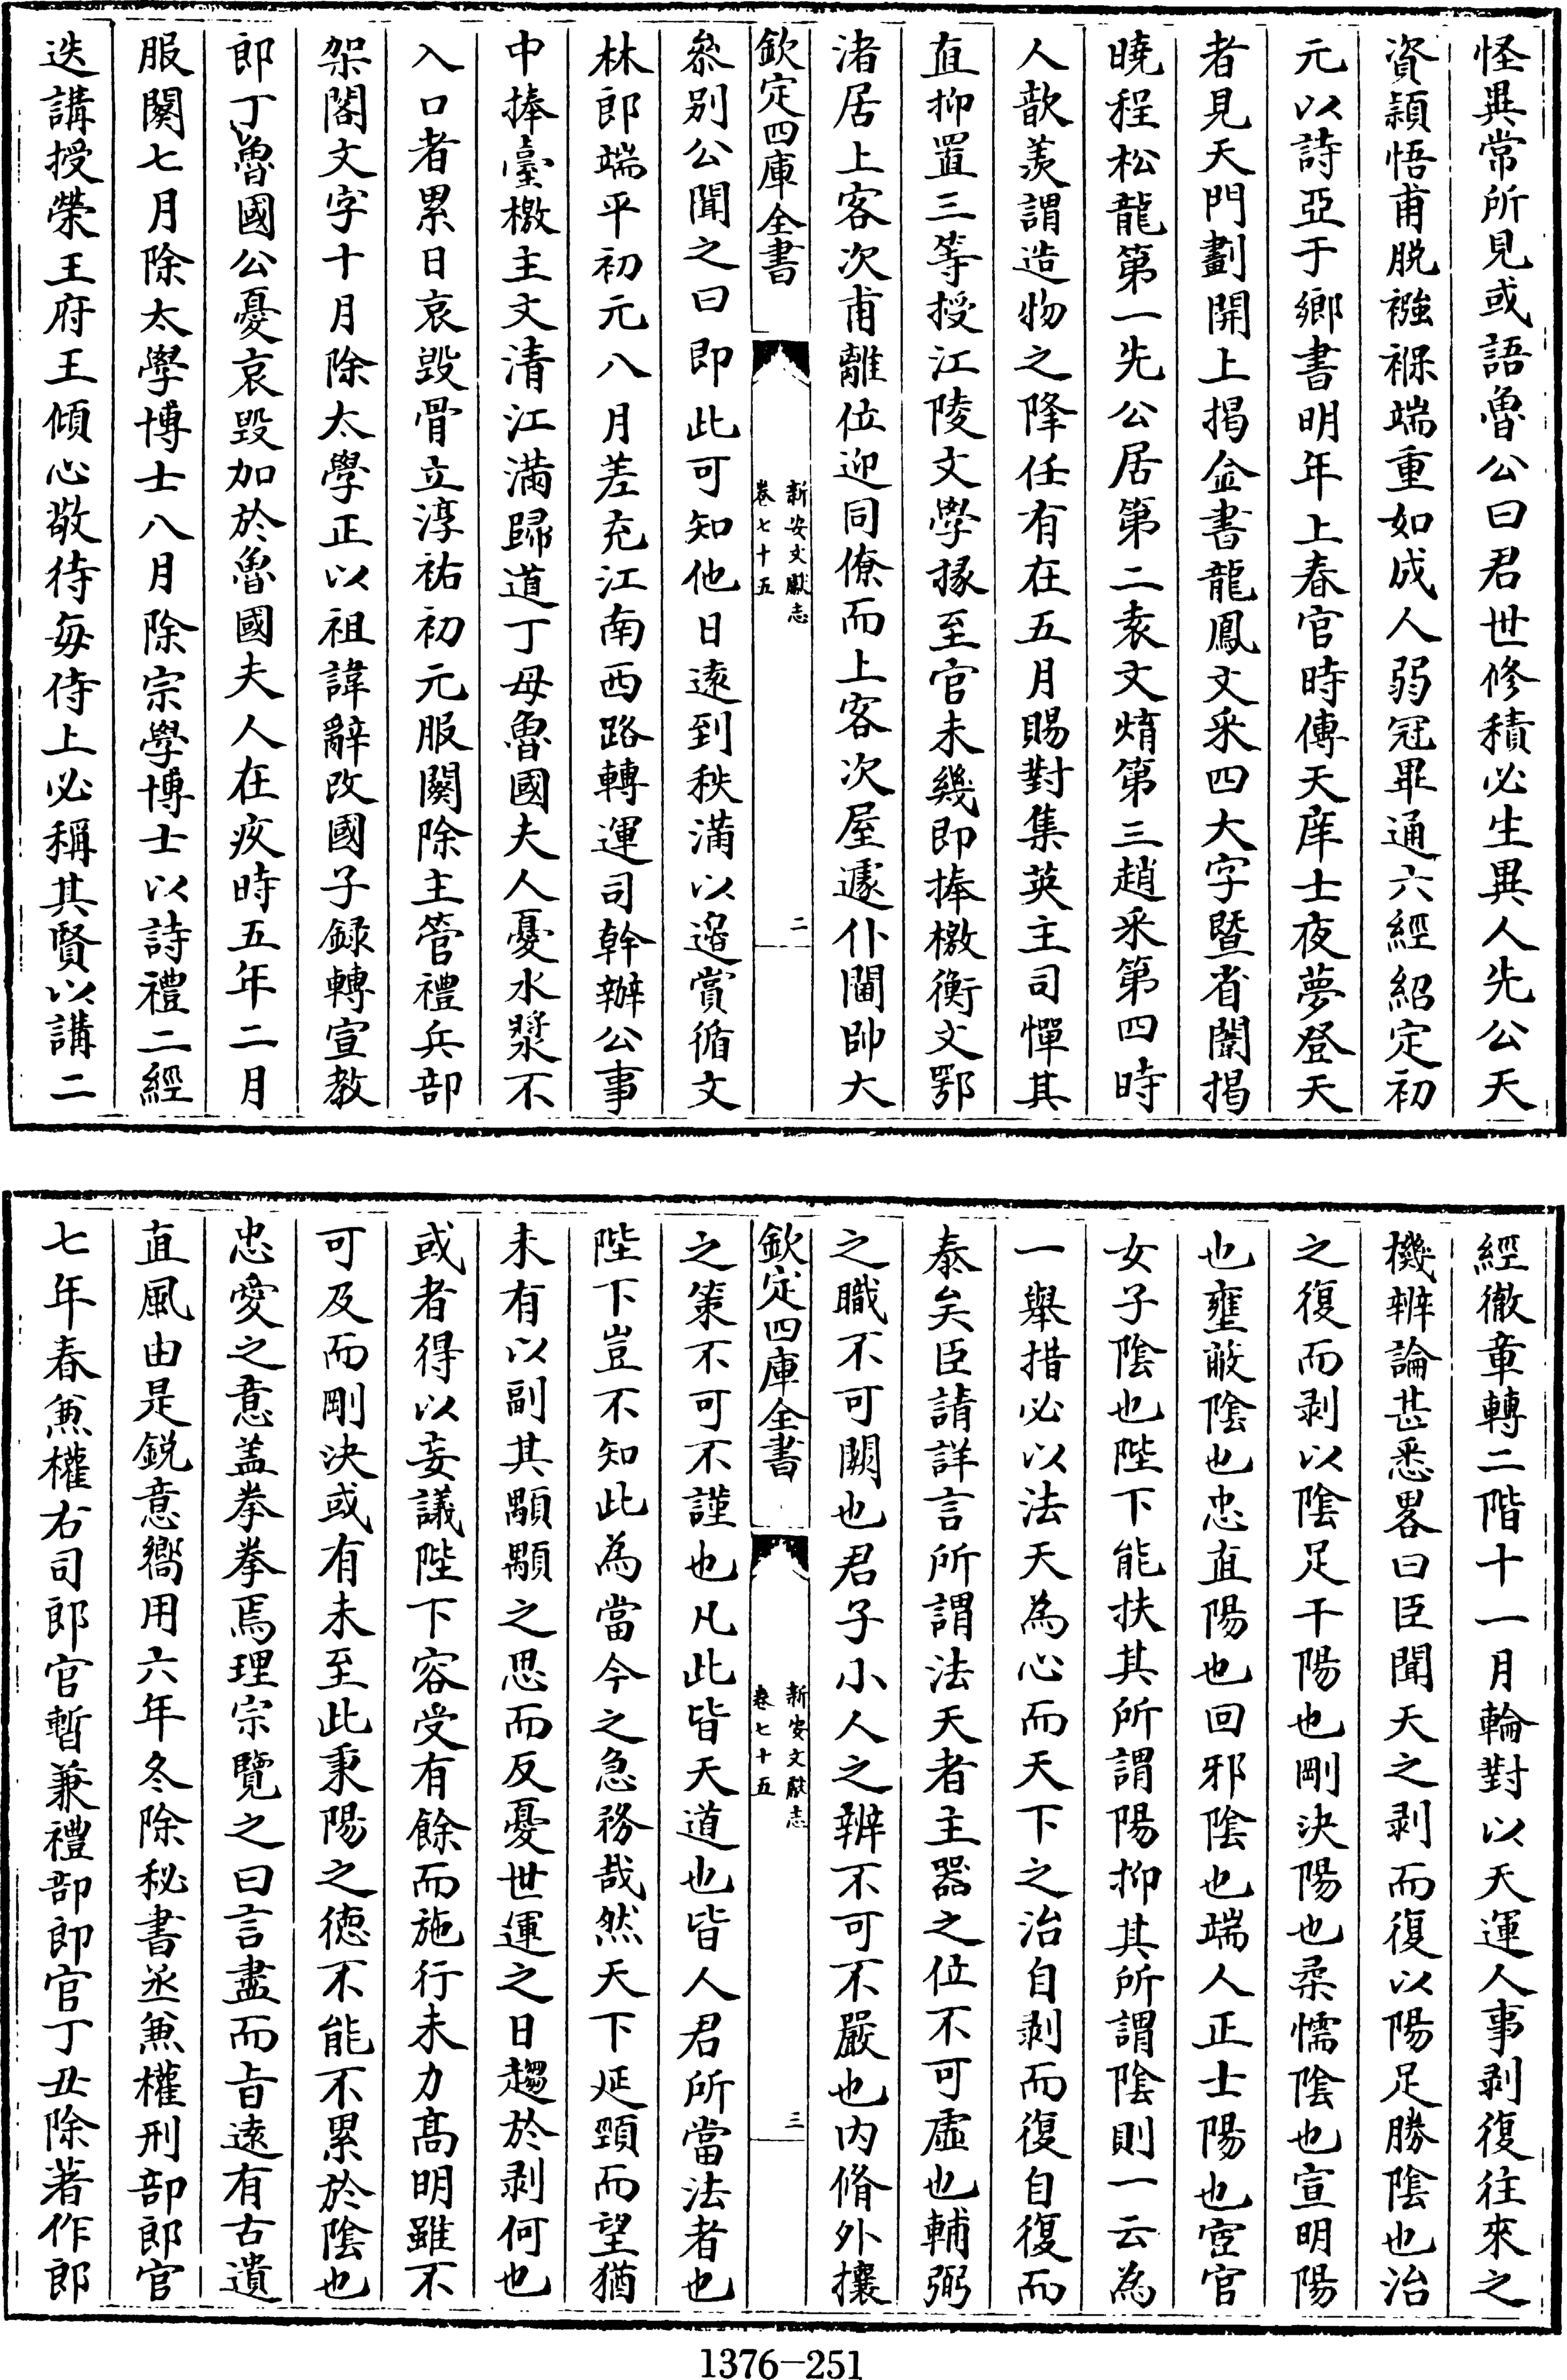 怪異常所見或語魯公曰君世修積必生異人先公天
資穎悟甫脱襁褓端重如成人弱冠畢通六經紹定初
元以詩亞于鄉書明年上春官時傳天庠士夜夢登天
者見天門劃開上揭金書龍鳳文采四大字暨省闈揭
曉程松龍第一先公居第二袁文焴第三趙采第四時
人歆羨謂造物之降任有在五月賜對集英主司憚其
直抑置三等授江陵文學掾至官未幾即捧檄衡文鄂
渚居上客次甫離位迎同僚而上客次屋遽仆閫帥大
欽定四庫全書
新安文獻志
卷七十五
二
叅别公聞之曰即此可知他日逺到秩滿以邊賞循文
林郎端平初元八月差充江南西路轉運司幹辦公事
中捧臺檄主文清江滿歸道丁母魯國夫人憂水漿不
入口者累日哀毀骨立淳祐初元服闋除主管禮兵部
架閣文字十月除太學正以祖諱辭改國子録轉宣教
郎丁魯國公憂哀毀加於魯國夫人在疚時五年二月
服闋七月除太學博士八月除宗學博士以詩禮二經
迭講授榮王府王傾心敬待每侍上必稱其賢以講二
經徹章轉二階十一月輪對以天運人事剥復往來之
機辨論甚悉畧曰臣聞天之剥而復以陽足勝陰也治
之復而剥以陰足干陽也剛決陽也柔懦陰也宣明陽
也壅蔽陰也忠直陽也回邪陰也端人正士陽也宦官
女子陰也陛下能扶其所謂陽抑其所謂陰則一云為
一舉措必以法天為心而天下之治自剥而復自復而
泰矣臣請詳言所謂法天者主器之位不可虛也輔弼
之職不可闕也君子小人之辨不可不嚴也内脩外攘
欽定四庫全書
新安文獻志
卷七十五
三
之策不可不謹也凡此皆天道也皆人君所當法者也
陛下豈不知此為當今之急務哉然天下延頸而望猶
未有以副其顒顒之思而反憂世運之日趨於剥何也
或者得以妄議陛下容受有餘而施行未力髙明雖不
可及而剛決或有未至此秉陽之徳不能不累於陰也
忠愛之意盖拳拳焉理宗覽之曰言盡而旨逺有古遺
直風由是鋭意嚮用六年冬除秘書丞兼權刑部郎官
七年春兼權右司郎官暫兼禮部郎官丁丑除著作郎
1376-251